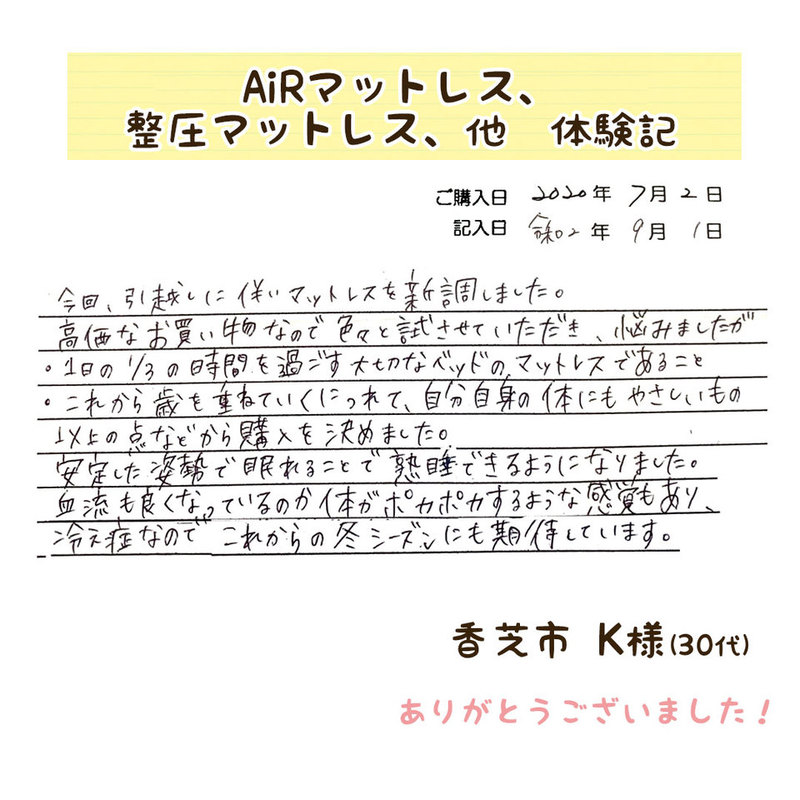 AiRマットレス、
整圧マットレス、他　体験記
ご購入日 2020年 7月 2日
記入日 令和2年 9月 1日
今回、引越しに伴いマットレスを新調しました。
高価なお買い物なので色々と試させていただき、悩みましたが
・1日の1/3の時間を過ごす大切なベッドのマットレスであること
・これから歳を重ねていくにつれて、自分自身の体にもやさしいもの
以上の点などから購入を決めました。
安定した姿勢で眠れることで熟睡できるようになりました。
血流も良くなっているのか体がポカポカするような感覚もあり、
冷え症なのでこれからの冬シーズンにも期待しています。
香芝市 K様(30代)
ありがとうございました！